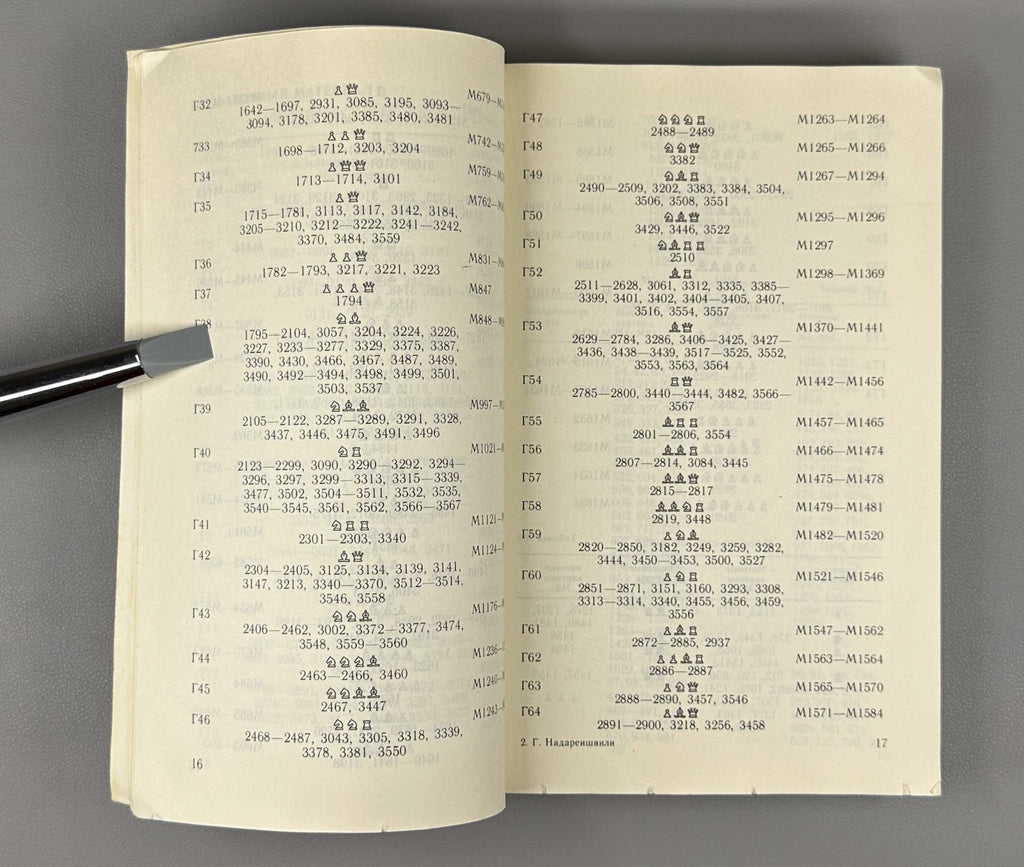 ♙♕
Г32
1642—1697, 2931, 3085, 3195, 3093—
3094, 3178, 3201, 3385, 3480, 3481
М679—
♙♙♕
733
1698—1712, 3203, 3204
М742—
♙♕♕
Г34
1713—1714, 3101
М759—
♙♕
Г35
1715—1781, 3113, 3117, 3142, 3184,
3205—3210, 3212—3222, 3241—3242,
3370, 3484, 3559
М762—
♙♙♕
Г36
1782—1793, 3217, 3221, 3223
М831—
♙♙♙♕
Г37
1794
М847
♘♗
1795—2104, 3057, 3204, 3224, 3226,
3227, 3233—3277, 3329, 3375, 3387,
3390, 3430, 3466, 3467, 3487, 3489,
3490, 3492—3494, 3498, 3499, 3501,
3503, 3537
М848—
♘♗♗
Г39
2105—2122, 3287—3289, 3291, 3328,
3437, 3446, 3475, 3491, 3496
М997—
♘♖
Г40
2123—2299, 3090, 3290—3292, 3294—
3296, 3297, 3299—3313, 3315—3339,
3477, 3502, 3504—3511, 3532, 3535,
3540—3545, 3561, 3562, 3566—3567
М1021—
♘♖♖
Г41
2301—2303, 3340
М1121—
♗♕
Г42
2304—2405, 3125, 3134, 3139, 3141,
3147, 3213, 3340—3370, 3512—3514,
3546, 3558
М1124—
♘♘♗
Г43
2406—2462, 3002, 3372—3377, 3474,
3548, 3559—3560
М1176—
♘♘♘♗
Г44
2463—2466, 3460
М1236—
♘♘♗♗
Г45
2467, 3447
М1240—
♘♘♖
Г46
2468—2487, 3043, 3305, 3318, 3339,
3378, 3381, 3550
М1243—
16
Г47 ♘♘♘♖ М1263—М1264
2488—2489
Г48 ♘♘♕ М1265—М1266
3382
Г49 ♘♗♖ М1267—М1294
2490—2509, 3202, 3383, 3384, 3504,
3506, 3508, 3551
Г50 ♘♗♕ М1295—М1296
3429, 3446, 3522
Г51 ♘♗♖♖ М1297
2510
Г52 ♗♖ М1298—М1369
2511—2628, 3061, 3312, 3335, 3385—
3399, 3401, 3402, 3404—3405, 3407,
3516, 3554, 3557
Г53 ♗♕ М1370—М1441
2629—2784, 3286, 3406—3425, 3427—
3436, 3438—3439, 3517—3525, 3552,
3553, 3563, 3564
Г54 ♖♕ М1442—М1456
2785—2800, 3440—3444, 3482, 3566—
3567
Г55 ♗♖♖ М1457—М1465
2801—2806, 3554
Г56 ♗♗♖ М1466—М1474
2807—2814, 3084, 3445
Г57 ♗♗♕ М1475—М1478
2815—2817
Г58 ♗♗♘♖ М1479—М1481
2819, 3448
Г59 ♙♘♗ М1482—М1520
2820—2850, 3182, 3249, 3259, 3282,
3444, 3450—3453, 3500, 3527
Г60 ♙♘♖ М1521—М1546
2851—2871, 3151, 3160, 3293, 3308,
3313—3314, 3340, 3455, 3456, 3459,
3556
Г61 ♙♗♖ М1547—М1562
2872—2885, 2937
Г62 ♙♙♗♖ М1563—М1564
2886—2887
Г63 ♙♘♕ М1565—М1570
2888—2890, 3457, 3546
Г64 ♙♗♕ М1571—М1584
2891—2900, 3218, 3256, 3458
2. Г. Надареишвили 17